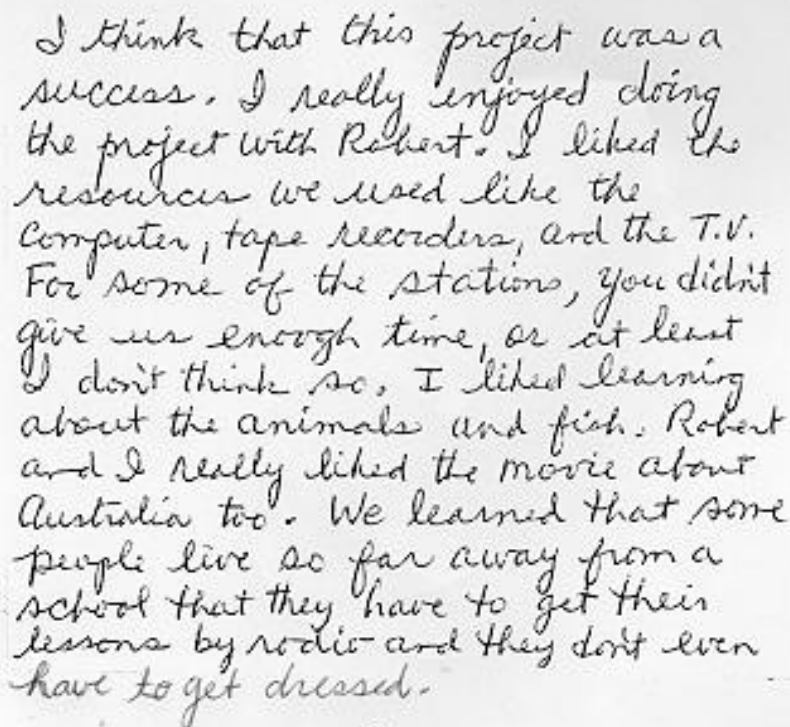 I think that this project was a
success. I really enjoyed doing
the project with Robert. I liked the
resources we used like the
Computer, tape recorders, and the T.V.
For some of the stations, you didn't
give us enough time, or at least
I don't think so. I liked learning
about the animals and fish. Robert
and I really liked the movie about
Australia too. We learned that some
people live so far away from a
school that they have to get their
lessons by radio and they don't even
have to get dressed.